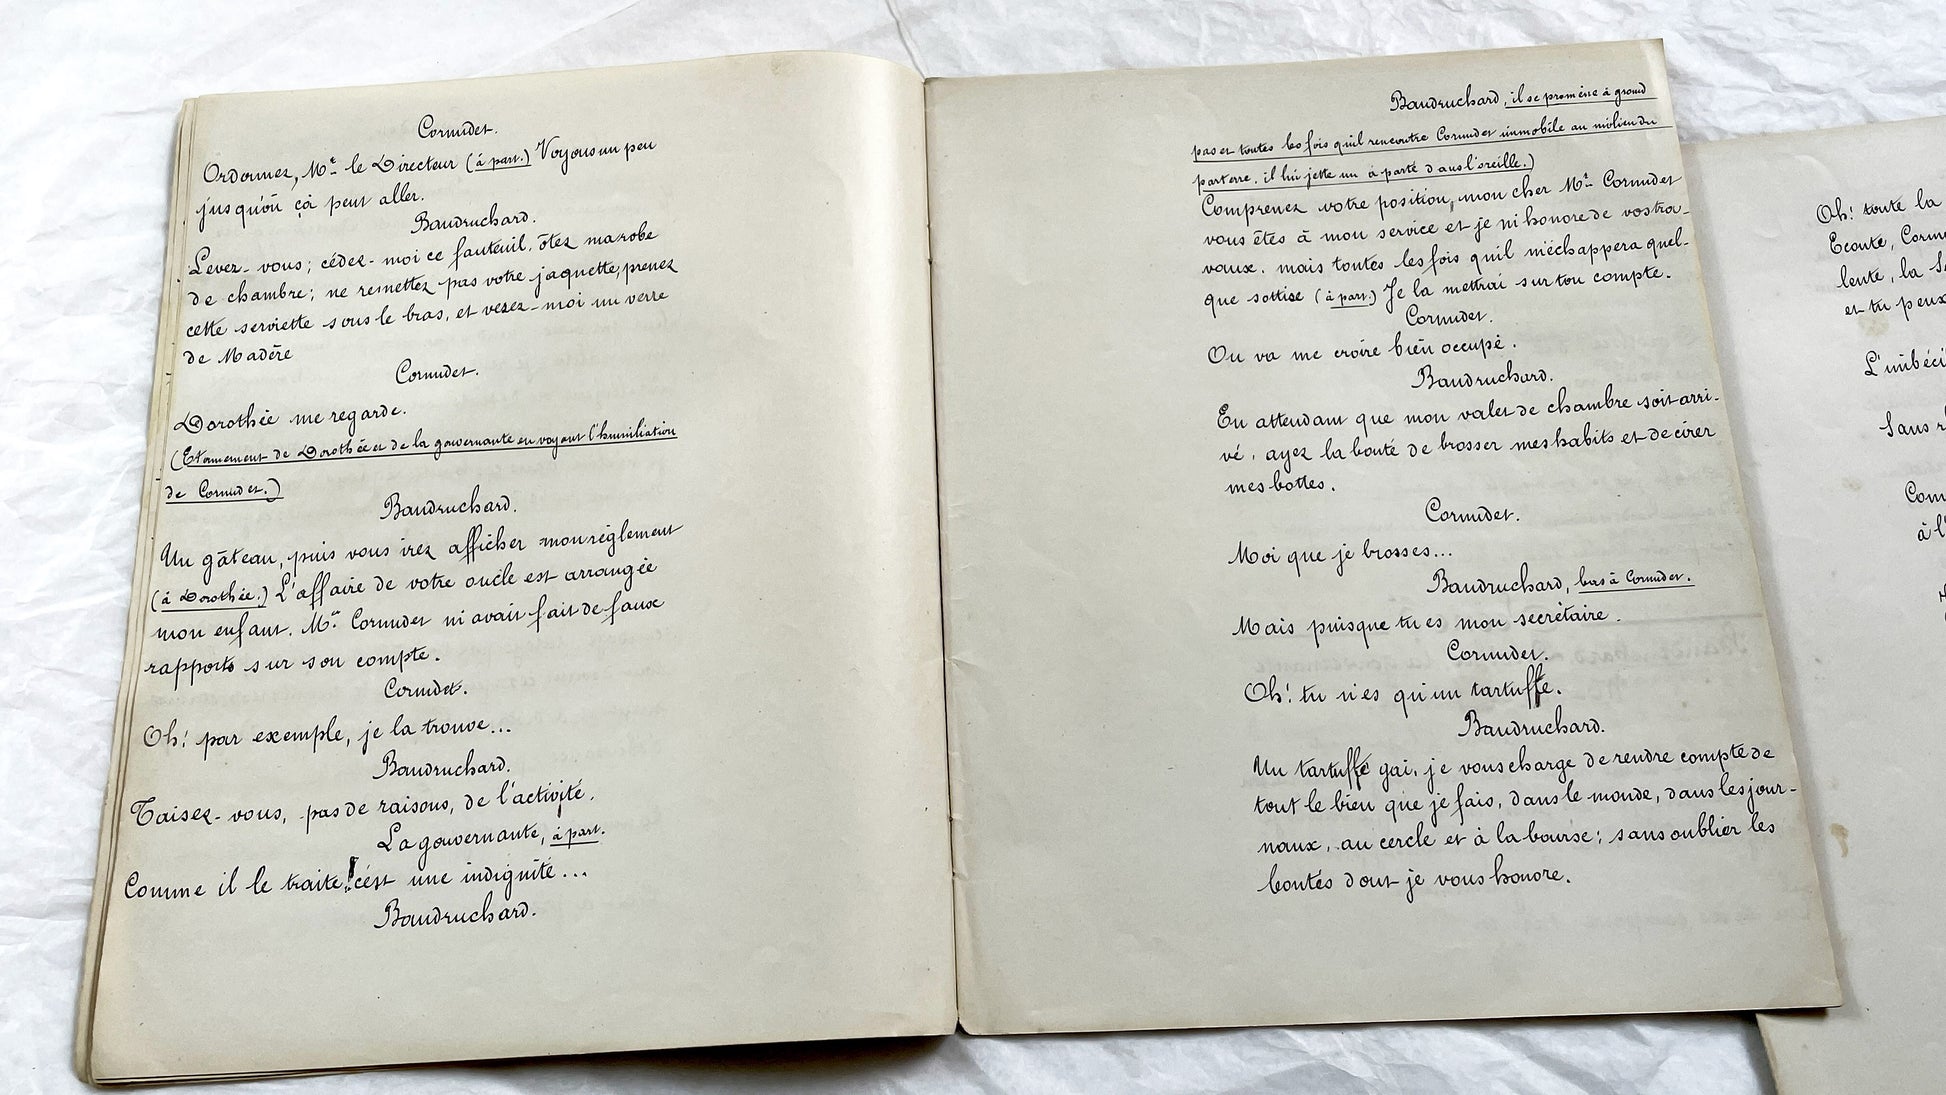 Cornudet.
Ordonnez, Mr. le Directeur (à part.) Voyons un peu
jusqu'où çà peut aller.
Baudruchard.
Levez-vous; cédez-moi ce fauteuil, ôtez ma robe
de chambre; ne remettez pas votre jaquette, prenez
cette serviette sous le bras, et vesez-moi un verre
de Madère
Cornudet.
Dorothée me regarde.
(Etonnement de Dorothée et de la gouvernante en voyant l'humiliation
de Cornudet.)
Baudruchard.
Un gâteau, puis vous irez afficher mon règlement
(à Dorothée.) L'affaire de votre oncle est arrangée
mon enfant. Mr. Cornudet m'avait fait de faux
rapports sur son compte.
Cornudet.
Oh! par exemple, je la trouve...
Baudruchard.
Taisez-vous, pas de raisons, de l'activité.
La gouvernante, à part.
Comme il le traite! c'est une indignité...
Baudruchard.
Baudruchard, il se promène à grand
pas et toutes les fois qu'il rencontre Cornudet immobile au milieu du
parterre, il lui jette un à parté dans l'oreille.)
Comprenez votre position, mon cher Mr. Cornudet
vous êtes à mon service et je m'honore de vos tra-
vaux. mais toutes les fois qu'il m'échappera quel-
que sottise (à part.) Je la mettrai sur ton compte.
Cornudet.
On va me croire bien occupé.
Baudruchard.
En attendant que mon valet de chambre soit arri-
vé, ayez la bonté de brosser mes habits et de cirer
mes bottes.
Cornudet.
Moi que je brosses...
Baudruchard, bas à Cornudet.
Mais puisque tu es mon secrétaire.
Cornudet.
Oh! tu n'es qu'un tartuffe.
Baudruchard.
Un tartuffe gai, je vous charge de rendre compte de
tout le bien que je fais, dans le monde, dans les jour-
naux, au cercle et à la bourse; sans oublier les
bontés dont je vous honore.
Oh! toute la
Ecoute, Corn
lente, la
et tu peux
L'imbéci
Sans
Com
à l'